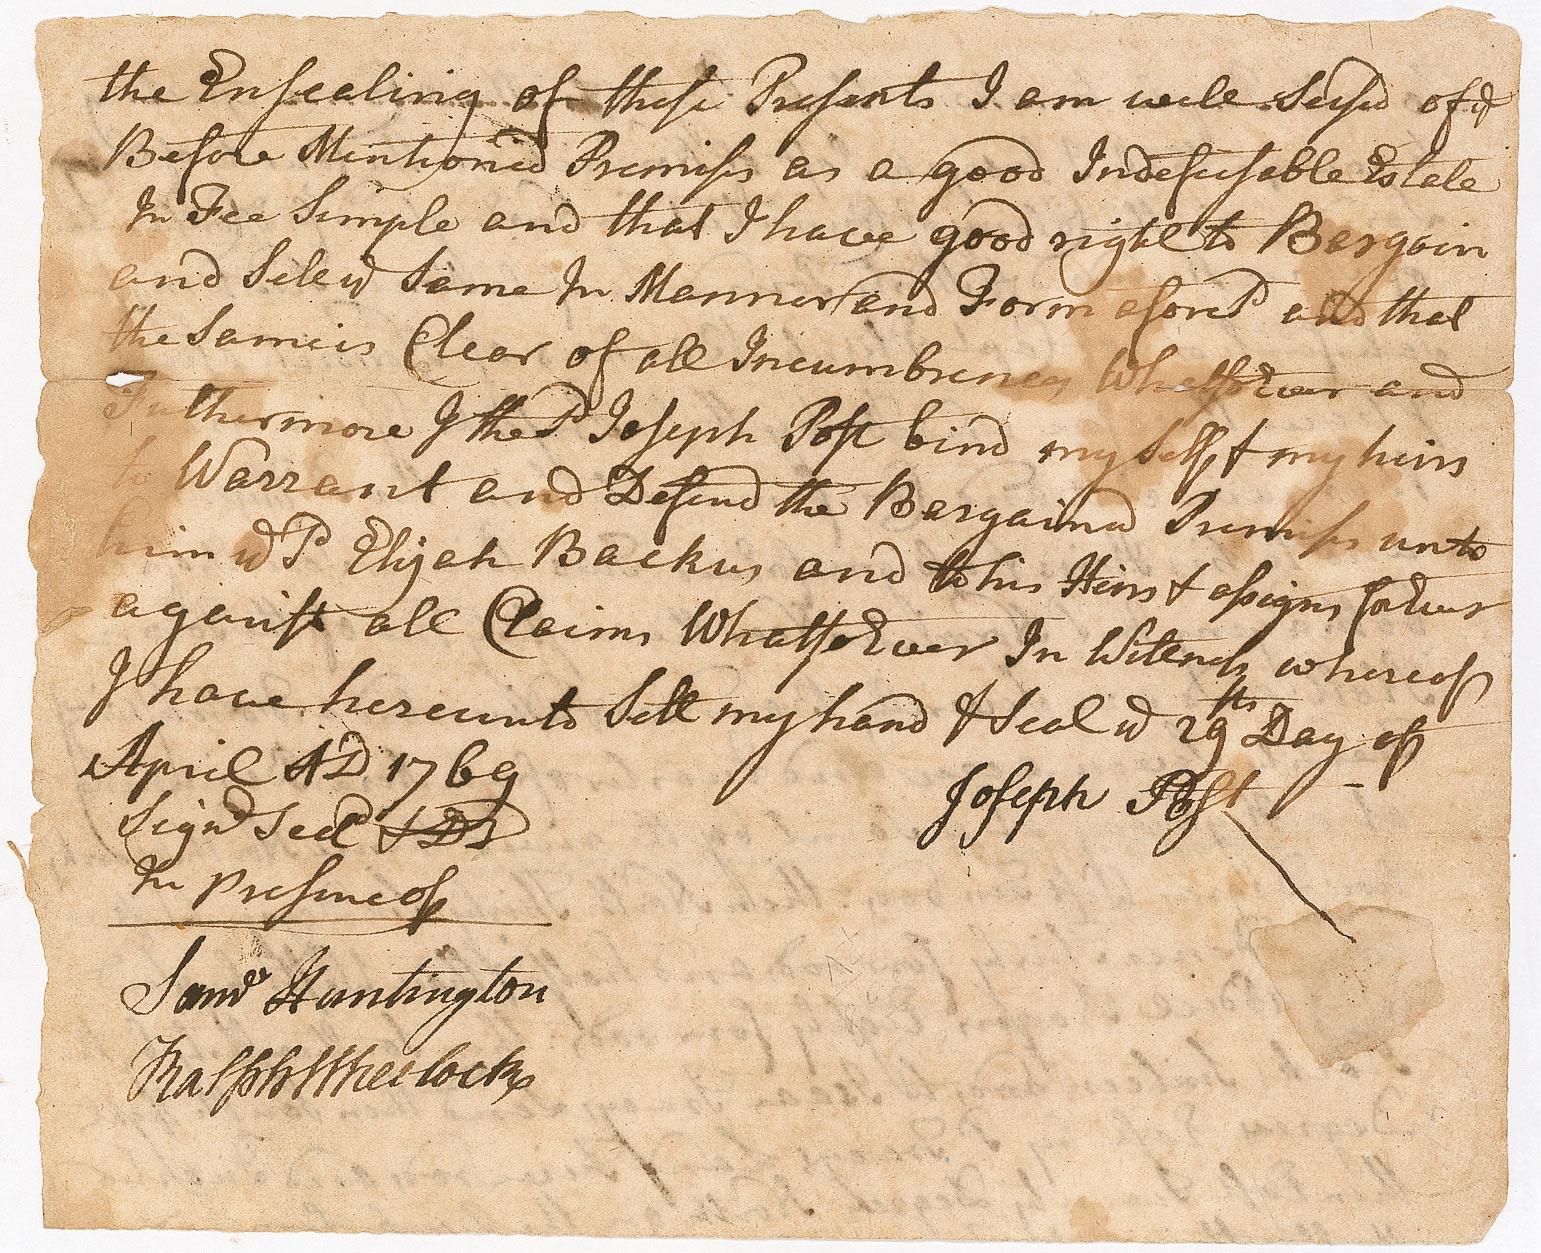 the Ensealing of these Presents I am well Seised of ye
Before Mentioned Premises as a good Indefeasable Estate
In Fee Simple and that I have good right to Bargain
and Sele ye Same In Manner and Form aforesd and that
the Same is Clear of all Incumbrences Whatsoever and
Futhermore I the sd Joseph Post bind my Self & my heirs
to Warrant and Defend the Bargained Premises unto
him ye sd Elijah Backus and to his Heirs & assigns forEver
against all Claims WhatsoEver In Witness whereof
I have hereunto Sett my hand & Seal ye 29th Day of
April AD 1769
Joseph Post
Signd Seald & Dd
In Presence of
Samll Huntington
Ralph Wheelock